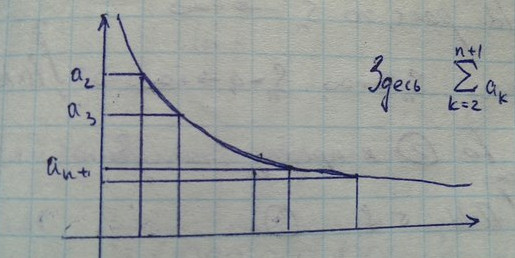 a₂
a₃
aₙ₊₁
Здесь ∑ₖ₌₂ⁿ⁺¹ aₖ